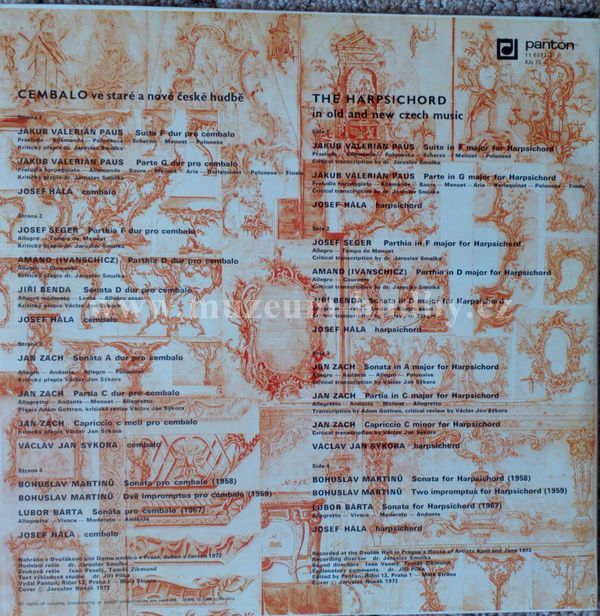 panton
11 0333
Kčs 75,-
CEMBALO ve staré a nové české hudbě
Strana 1
JAKUB VALERIÁN PAUS Suita F dur pro cembalo
Praeludo — Allemanda — Polonesca — Scherzo — Menuet — Polonaise
Kritický přepis dr. Jaroslav Smolka
JAKUB VALERIÁN PAUS Parte G dur pro cembalo
Preludio harpeggiato — Allemanda — Baure — Menuet — Aria — Harlequinat — Polonese — Finale
Kritický přepis dr. Jaroslav Smolka
JOSEF HÁLA cembalo
Strana 2
JOSEF SEGER Parthia F dur pro cembalo
Allegro — Tempo de Menuet
Kritický přepis dr. Jaroslav Smolka
AMAND (IVANSCHICZ) Parthia D dur pro cembalo
Allegro — Courente
Kritický přepis dr. Jaroslav Smolka
JIŘÍ BENDA Sonata D dur pro cembalo
Allegro moderato — Lento — Allegro assai
Kritický přepis Václav Jan Sýkora
JOSEF HÁLA cembalo
Strana 3
JAN ZACH Sonáta A dur pro cembalo
Allegro — Andante — Allegro — Polonaise
Kritický přepis Václav Jan Sýkora
JAN ZACH Partia C dur pro cembalo
Allegretto — Andante — Menuet — Allegretto
Přepis Adam Gottron, kritická revize Václav Jan Sýkora
JAN ZACH Capriccio c moll pro cembalo
Kritický přepis Václav Jan Sýkora
VÁCLAV JAN SÝKORA cembalo
Strana 4
BOHUSLAV MARTINŮ Sonáta pro cembalo (1958)
BOHUSLAV MARTINŮ Dvě impromptus pro cembalo (1959)
LUBOR BÁRTA Sonáta pro cembalo (1967)
Allegretto — Vivace — Moderato — Andante
JOSEF HÁLA cembalo
Nahráno v Dvořákově síni Domu umělců v Praze, duben a červen 1972
Hudební režie dr. Jaroslav Smolka
Zvuková režie Ivan Veselý, Tomáš Zikmund
Text výkladové studie dr. Jiří Pilka
Vydal Panton, Říční 12, Praha 1 - Malá Strana
Cover © Jaroslav Novák 1972
THE HARPSICHORD
in old and new czech music
Side 1
JAKUB VALERIÁN PAUS Suite in F major for Harpsichord
Praeludo — Allemanda — Polonesca — Scherzo — Menuet — Polonaise
Critical transcription by dr. Jaroslav Smolka
JAKUB VALERIÁN PAUS Parte in G major for Harpsichord
Preludio harpeggiato — Allemanda — Baure — Menuet — Aria — Harlequinat — Polonese — Finale
Critical transcription by dr. Jaroslav Smolka
JOSEF HÁLA harpsichord
Side 2
JOSEF SEGER Parthia in F major for Harpsichord
Allegro — Tempo de Menuet
Critical transcription by dr. Jaroslav Smolka
AMAND (IVANSCHICZ) Parthia in D major for Harpsichord
Allegro — Courente
Critical transcription by dr. Jaroslav Smolka
JIŘÍ BENDA Sonata in D major for Harpsichord
Allegro moderato — Lento — Allegro assai
Critical transcription by Václav Jan Sýkora
JOSEF HÁLA harpsichord
Side 3
JAN ZACH Sonata in A major for Harpsichord
Allegro — Andante — Allegro — Polonaise
Critical transcription by Václav Jan Sýkora
JAN ZACH Partia in C major for Harpsichord
Allegretto — Andante — Menuet — Allegretto
Transcription by Adam Gottron, critical review by Václav Jan Sýkora
JAN ZACH Capriccio C minor for Harpsichord
Critical transcription by Václav Jan Sýkora
VÁCLAV JAN SÝKORA harpsichord
Side 4
BOHUSLAV MARTINŮ Sonata for Harpsichord (1958)
BOHUSLAV MARTINŮ Two impromptus for Harpsichord (1959)
LUBOR BÁRTA Sonata for Harpsichord (1967)
Allegretto — Vivace — Moderato — Andante
JOSEF HÁLA harpsichord
Recorded at the Dvořák Hall in Prague's House of Artists April and June 1972
Recording director dr. Jaroslav Smolka
Sound directors Ivan Veselý, Tomáš Zikmund
Explanatory comments dr. Jiří Pilka
Edited by Panton, Říční 12, Praha 1 - Malá Strana
Cover © Jaroslav Novák 1972